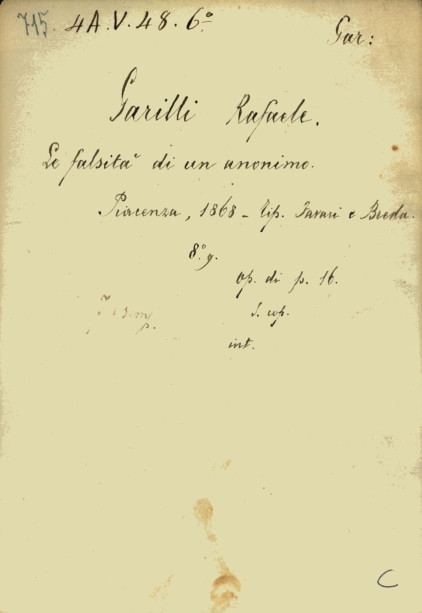 715. 4A.V.48.6º
Gar:
Garilli Rafaele.
Le falsità di un anonimo.
Piacenza, 1868 - tip. Favari e Breda.
8.º g.
op. di p. 16.
s. cop.
int.
C